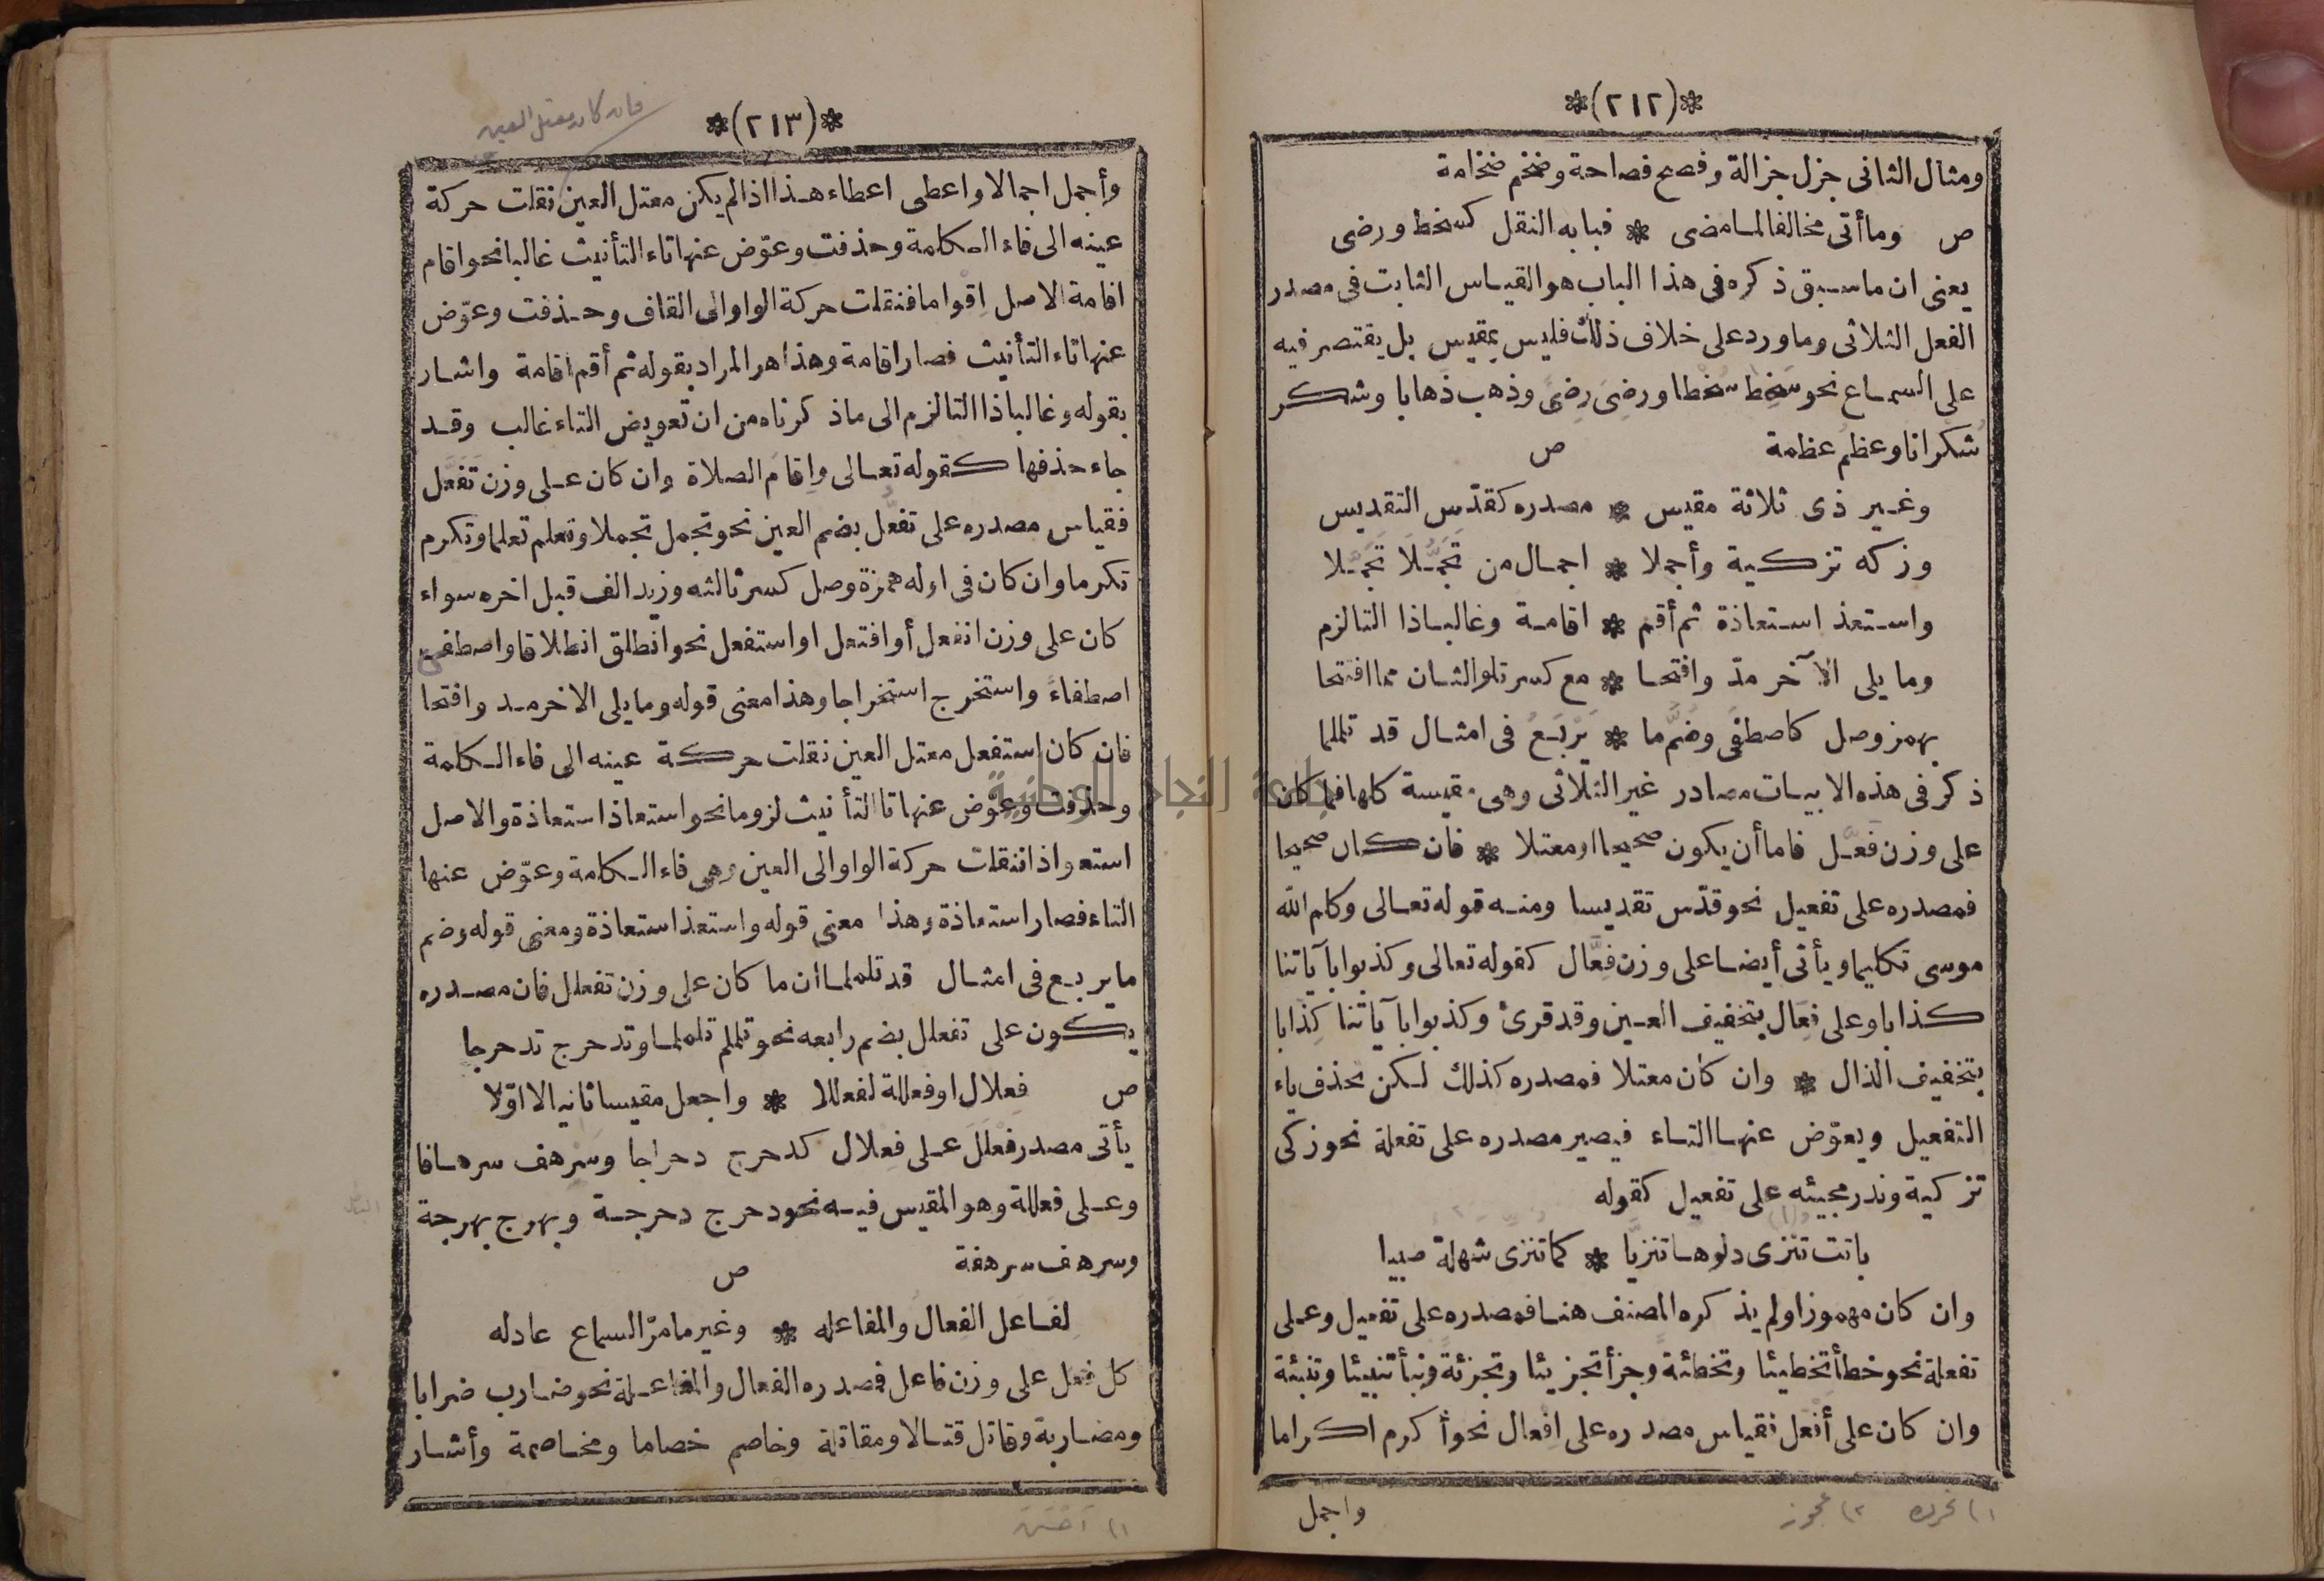 *(٢١٢)*
ومثال الثانى جزل جزالة وفصح فصاحة وضخم ضخامة
ص وما أتى مخالفا لما مضى * فبابه النقل كسخط ورضى
يعنى ان ما سبق ذكره فى هذا الباب هو القياس الثابت فى مصدر
الفعل الثلاثى وما ورد على خلاف ذلك فليس بمقيس بل يقتصر فيه
على السماع نحو سَخِط سُخْطا ورضِىَ رِضىً وذهب ذَهابا وشكر
شُكرانا وعظُم عظمة ص
وغير ذى ثلاثة مقيس * مصدره كقدّس التقديس
وزكه تزكية وأجملا * اجمال من تَجَمُّلَا تَجَمَّلا
واستعذ استعاذة ثم أقم * اقامة وغالبا ذا التا لزم
وما يلى الآخر مدّ وافتحا * مع كسر تلو الثان مما افتتحا
بهمز وصل كاصطفى وضُمَّ ما * يَرْبَعُ فى امثال قد تلملما
ذكر فى هذه الابيات مصادر غير الثلاثى وهى مقيسة كلها فما كان
على وزن فَعَّل فاما أن يكون صحيحا او معتلا * فان كان صحيحا
فمصدره على تفعيل نحو قدّس تقديسا ومنه قوله تعالى وكلم الله
موسى تكليما ويأتى أيضا على وزن فِعَّال كقوله تعالى وكذبوا بآياتنا
كذابا وعلى فِعَال بتخفيف العين وقد قرئ وكذبوا بآياتنا كِذَابا
بتخفيف الذال * وان كان معتلا فمصدره كذلك لكن تحذف ياء
التفعيل ويعوّض عنها التاء فيصير مصدره على تفعلة نحو زكى
تزكية وندر مجيئه على تفعيل كقوله
باتت تنزى دلوها تنزيًّا * كما تنزى شهلة صبيا
وان كان مهموزا ولم يذكره المصنف هنا فمصدره على تفعيل وعلى
تفعلة نحو خطأ تخطيئا وتخطئة وجزأ تجزيئا وتجزئة ونبأ تنبيئا وتنبئة
وان كان على أفعل فقياس مصدره على افعال نحو أكرم اكراما
واجمل
٢) عجوز
*(٢١٣)*
فان كان معتل العين
وأجمل اجمالا واعطى اعطاء هذا اذا لم يكن معتل العين نقلت حركة
عينه الى فاء الكلمة وحذفت وعوّض عنها تاء التأنيث غالبا نحو اقام
اقامة الاصل اِقْواما فنقلت حركة الواو الى القاف وحذفت وعوّض
عنها تاء التأنيث فصار اقامة وهذا هو المراد بقوله ثم أقم اقامة واشار
بقوله وغالبا ذا التا لزم الى ما ذكرناه من ان تعويض التاء غالب وقد
جاء حذفها كقوله تعالى واِقامَ الصلاة وان كان على وزن تَفَعَّل
فقياس مصدره على تفعُّل بضم العين نحو تجمل تجملا وتعلم تعلما وتكرم
تكرما وان كان فى اوله همزة وصل كسر ثالثه وزيد الف قبل اخره سواء
كان على وزن انفعل أو افتعل او استفعل نحو انطلق انطلاقا واصطفى
اصطفاءً واستخرج استخراجا وهذا معنى قوله وما يلى الاخر مد وافتحا
فان كان استفعل معتل العين نقلت حركة عينه الى فاء الكلمة
وحذفت وعوّض عنها تا التأنيث لزوما نحو استعاذ استعاذة والاصل
استعواذا فنقلت حركة الواو الى العين وهى فاء الكلمة وعوّض عنها
التاء فصار استعاذة وهذا معنى قوله واستعذ استعاذة ومعنى قوله وضم
ما يربع فى امثال قد تلملما أن ما كان على وزن تفعلل فان مصدره
يكون على تفعلل بضم رابعه نحو تلملم تلملما وتدحرج تدحرجا
ص فعلال او فعللة لفعللا * واجعل مقيسا ثانيا لا اوّلا
يأتى مصدر فَعْلَلَ على فِعْلال كدحرج دحراجا وسَرْهف سرهافا
وعلى فعللة وهو المقيس فيه نحو دحرج دحرجة وبهرج بهرجة
وسرهف سرهفة ص
لفاعَل الفعالُ والمفاعله * وغير ما مرّ السماع عادله
كل فعل على وزن فاعل فمصدره الفعال والمفاعلة نحو ضارب ضرابا
ومضاربة وقاتل قتالا ومقاتلة وخاصم خصاما ومخاصمة وأشار
جامعة النجاح الوطنية